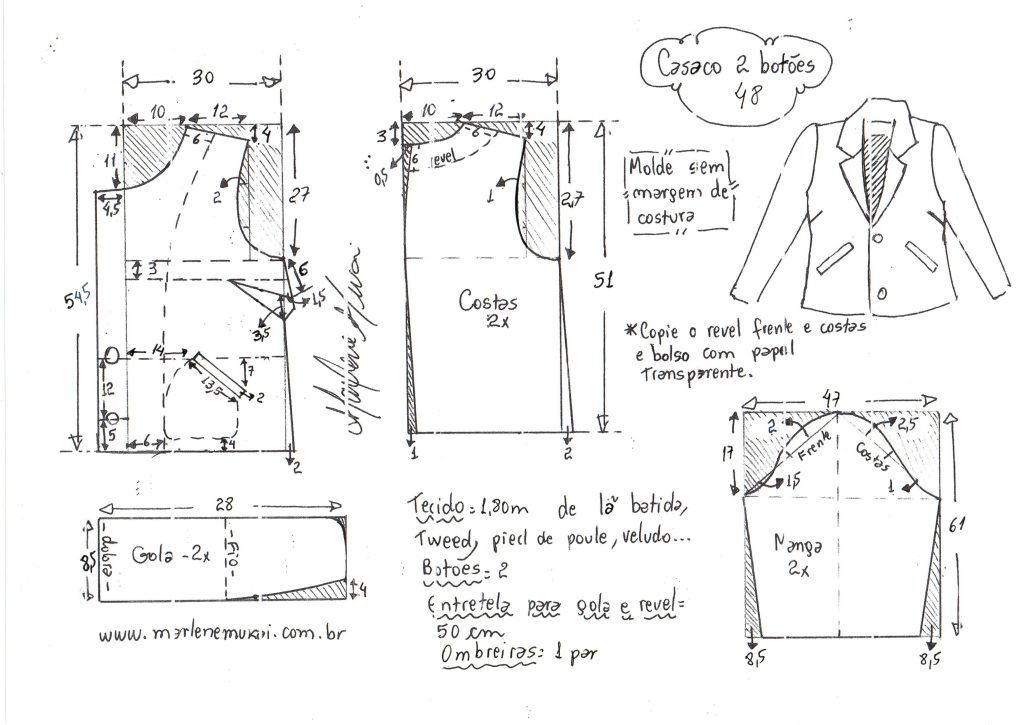 Casaco 2 botões
48
30
10
12
4
6
11
2
27
4,5
3
6
1,5
3,5
54,5
14
13,5
7
2
12
5
6
4
2
30
10
12
3
4
6
6
revel
0,5
1
2,7
51
Costas
2x
1
2
Molde sem
margem de
costura
*Copie o revel frente e costas
e bolso com papel
transparente.
47
2
2,5
17
Frente
Costas
1,5
1
61
Manga
2x
8,5
8,5
28
8,5
dobra
Gola - 2x
Fio
4
www.marlenemukai.com.br
Tecido = 1,80m de lã batida,
Tweed, pied de poule, veludo...
Botões = 2
Entretela para gola e revel=
50 cm
Ombreiras = 1 par